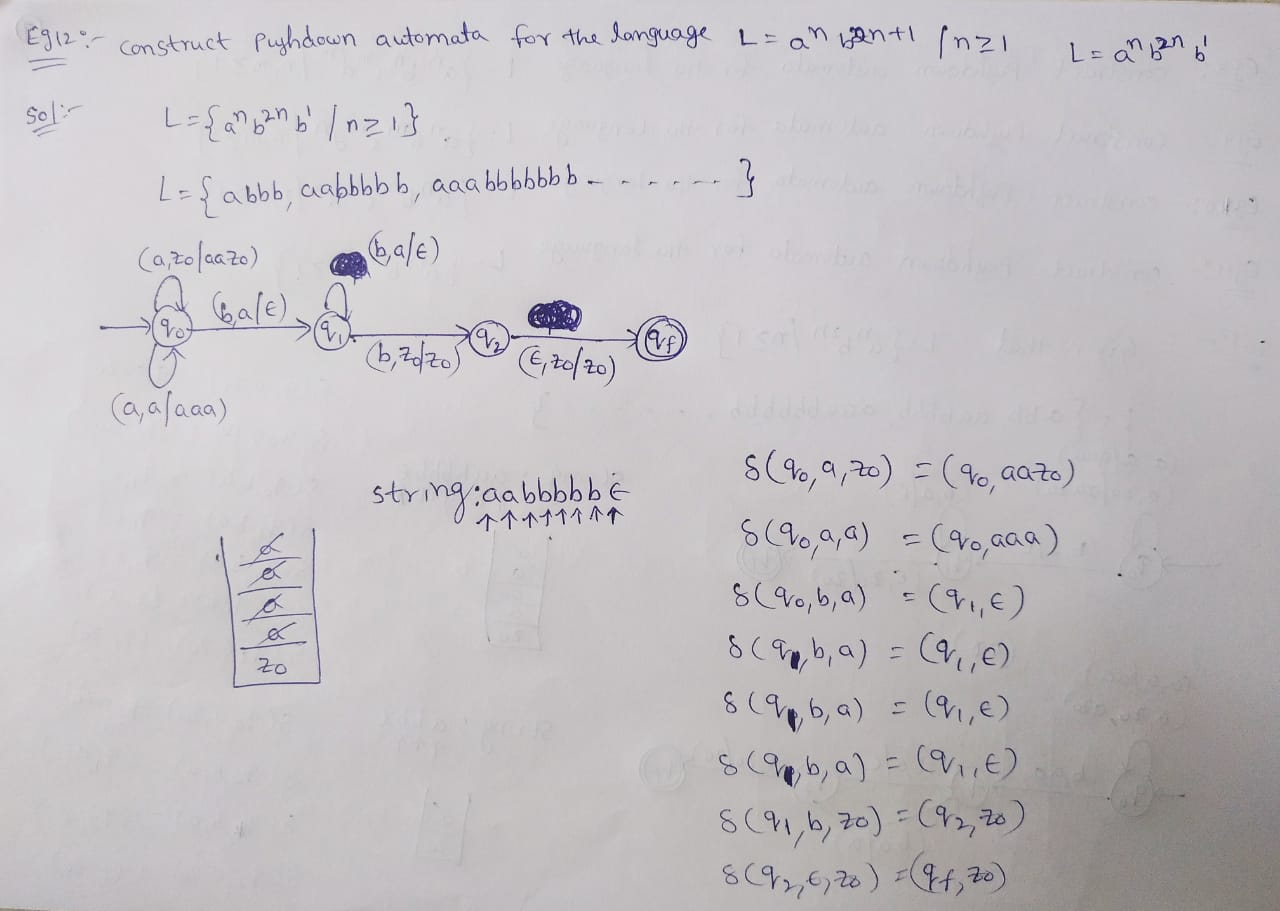 Eg12:- construct pushdown automata for the language L = aⁿ b²ⁿ⁺¹ / n≥1 L = aⁿ b²ⁿ b¹
Sol:- L = {aⁿ b²ⁿ b¹ / n≥1}
L = { abbb, aabbbbb, aaabbbbbbb - - - - - - }
(a,z0/aaz0) (b,a/ε)
(b,a/ε)
q0 q1 q2 qf
(b,z0/z0) (ε,z0/z0)
(a,a/aaa)
string: aabbbbbε
↑↑↑↑↑↑↑↑
a
a
a
a
z0
δ(q0,a,z0) = (q0,aaz0)
δ(q0,a,a) = (q0,aaa)
δ(q0,b,a) = (q1,ε)
δ(q1,b,a) = (q1,ε)
δ(q1,b,a) = (q1,ε)
δ(q1,b,a) = (q1,ε)
δ(q1,b,z0) = (q2,z0)
δ(q2,ε,z0) = (qf,z0)